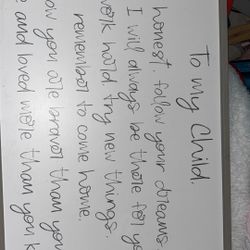 To my Child.
honest. follow your dreams
I will always be there for
work hard. Try new things.
remember to come home.
you are braver than you
and loved more than you